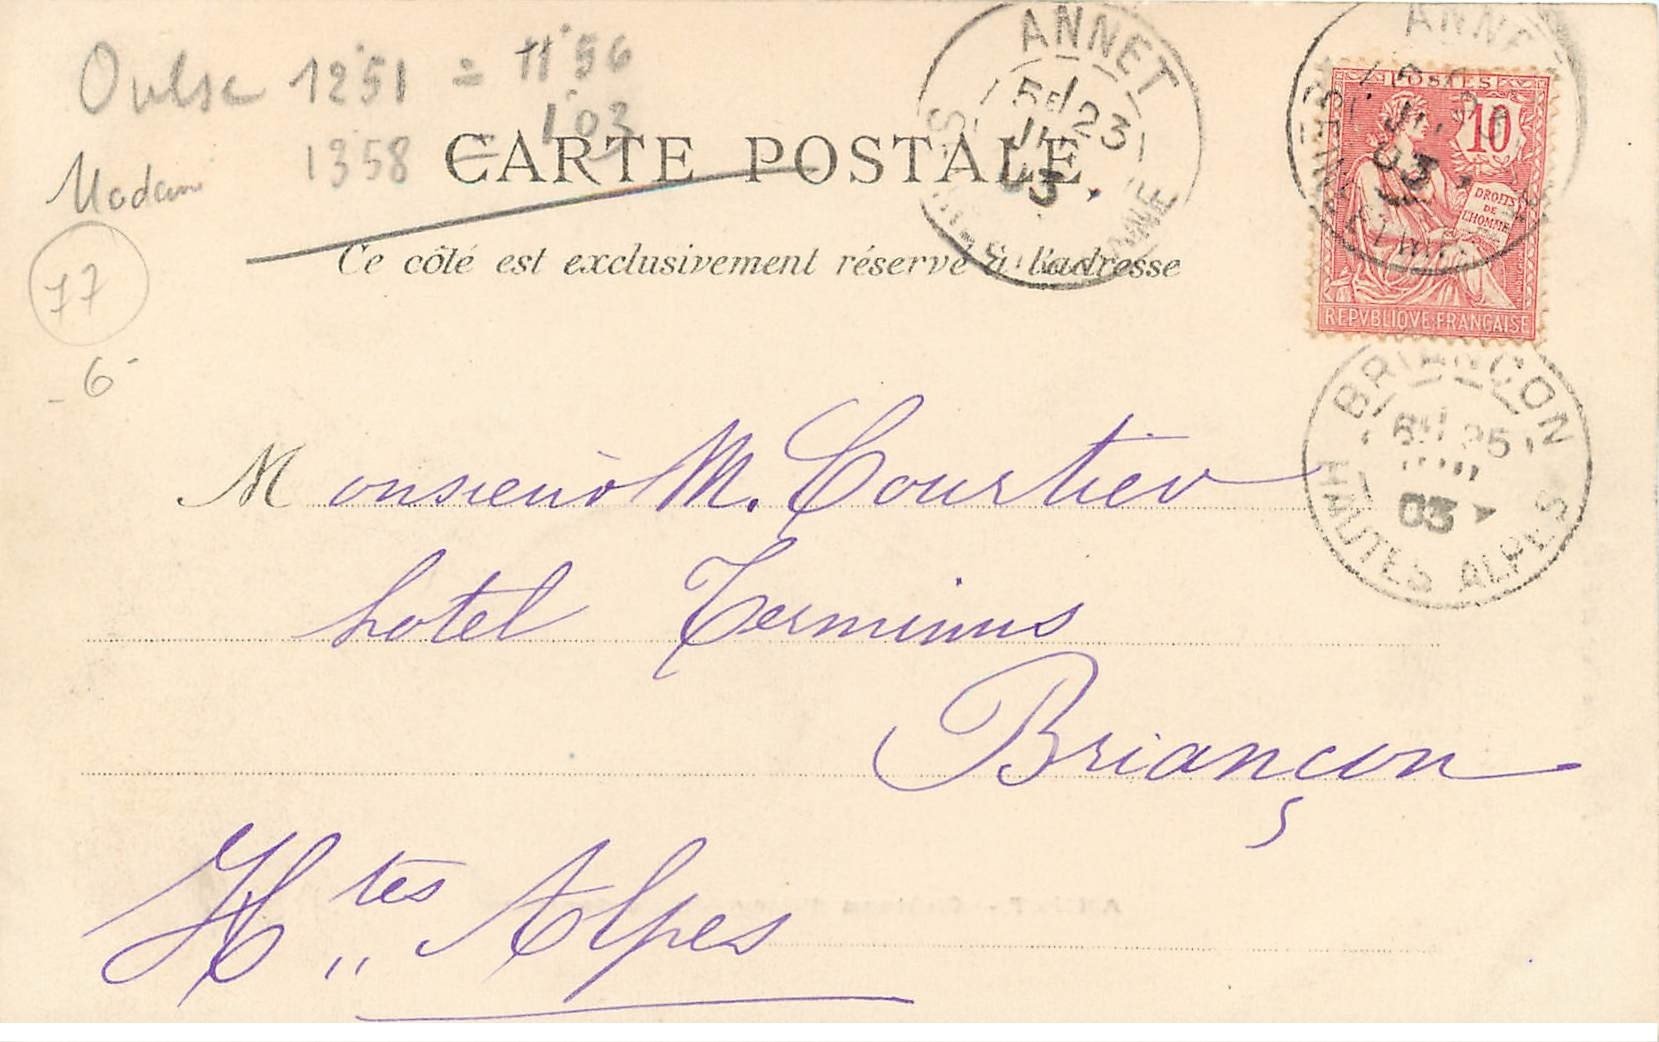 Oulse 12°51 = 11°56
1358 = 1°03
Madam
77
- 6 -
CARTE POSTALE
Ce côté est exclusivement réservé à l'adresse
ANNET
5E 23
03
SEINE-ET-MARNE
POSTES
10
DROITS
DE
L'HOMME
REPVBLIQVE FRANÇAISE
BRIANÇON
6E 25
03
HAUTES ALPES
Monsieur M. Courtier
hotel Terminus
Briançon
Htes Alpes